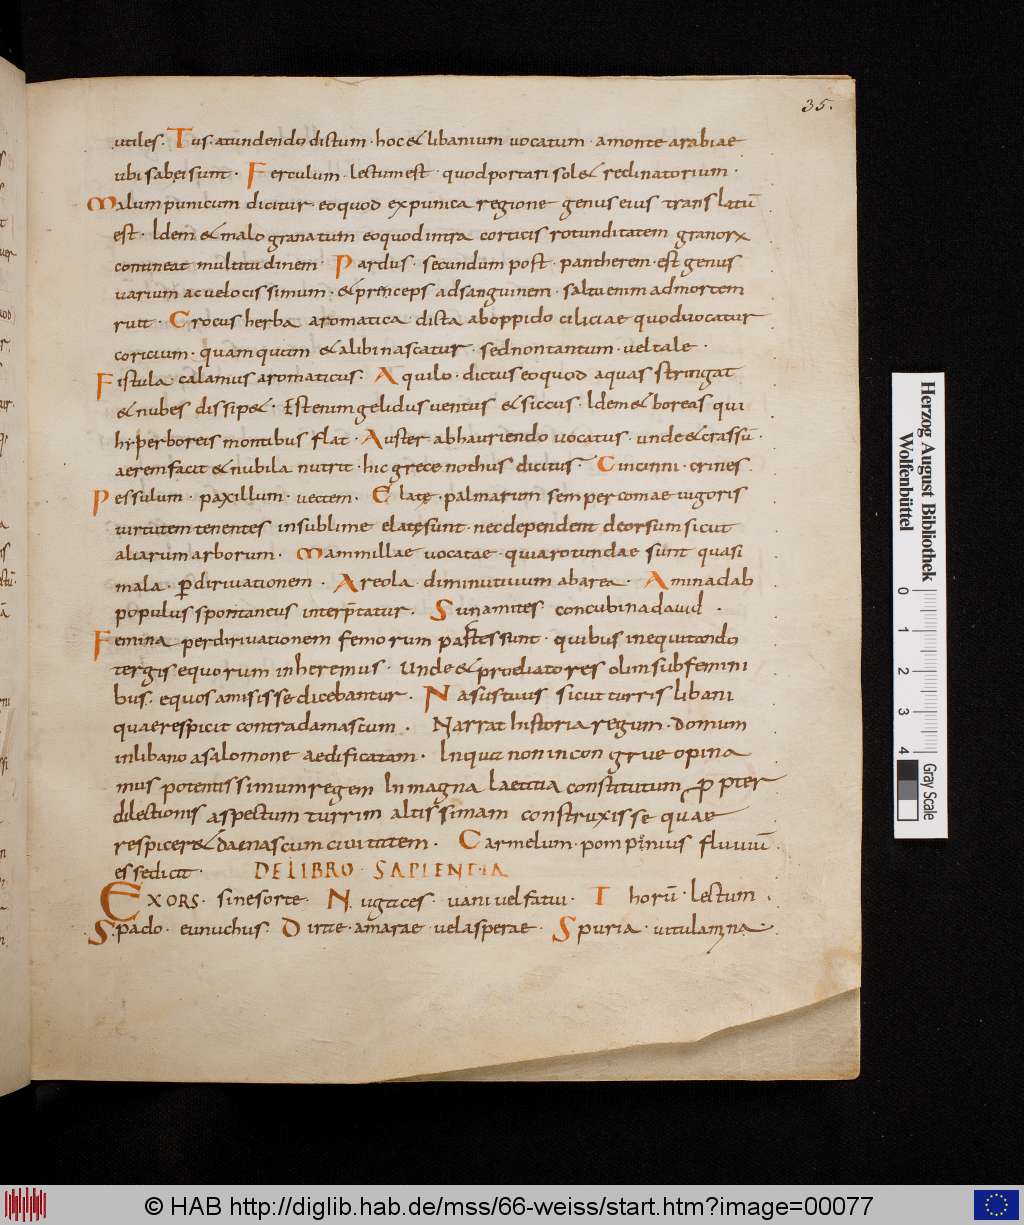 35.
utiles. Tus. atundendo dictum. hoc & libanum vocatum. amonte arabiae
ubi sabęi sunt. Ferculum. lectum est. quod portari sol& reclinatorium.
Malum punicum dicitur. eo quod ex punica regione genus eius translatū
est. Idem & malo granatum eo quod intra corticis rotunditatem granorꝝ
contineat multitudinem. Pardus. secundum post. pantherem. est genus
varium ac velocissimum. & prẹnceps ad sanguinem. saltu enim ad mortem
ruit. Crocus herba aromatica. dicta ab oppido ciliciae quod vocatur
coricium. quamquam & alibi nascatur. sed non tantum. vel tale.
Fistula calamus aromaticus. Aquilo. dictus eo quod aquas stringat
& nubes dissip&. Est enim gelidus ventus & siccus. Idem & boreas qui
hyperboreis montibus flat. Auster ab hauriendo vocatus. unde & crassū.
aerem facit & nubila nutrit. hic grece nothus dicitus. Cincinni. crines.
Pessulum. paxillum. vectem. Elatę. palmarum semper comae vigoris
virtutem tenentes in sublime elatę sunt. nec dependent deorsum sicut
aliarum arborum. Mammillae vocatae. quia rotundae sunt quasi
mala. ꝑ dirivationem. Areola diminutivum ab area. Aminadab
populus spontaneus interp̄tatur. Sunamites concubina david.
Femina per dirivationem femorum partes sunt. quibus in equitando
tergis equorum inheremus. Unde & proeliatores olim sub femini
bus. equos amisisse dicebantur. Nasus tuus sicut turris libani
quae respicit contra damascum. Narrat historia regum. domum
in libano a salomone aedificatam. In qua non incongrue opina
mus potentissimum regem In magna laetitia constitutum. ꝓpter
dilectionis aspectum turrim altissimam construxisse quae
respicer& damascum civitatem. Carmelum. pompinius fluvium
esse dicit. DE LIBRO SAPIENTIA
EXORS. sine sorte. Nugaces. vani vel fatui. Thorū. lectum.
Spado. eunuchus. Dirae. amarae vel asperae. Spuria. vitulamina.
Herzog August Bibliothek
Wolfenbüttel
0 1 2 3 4
Gray Scale
© HAB http://diglib.hab.de/mss/66-weiss/start.htm?image=00077